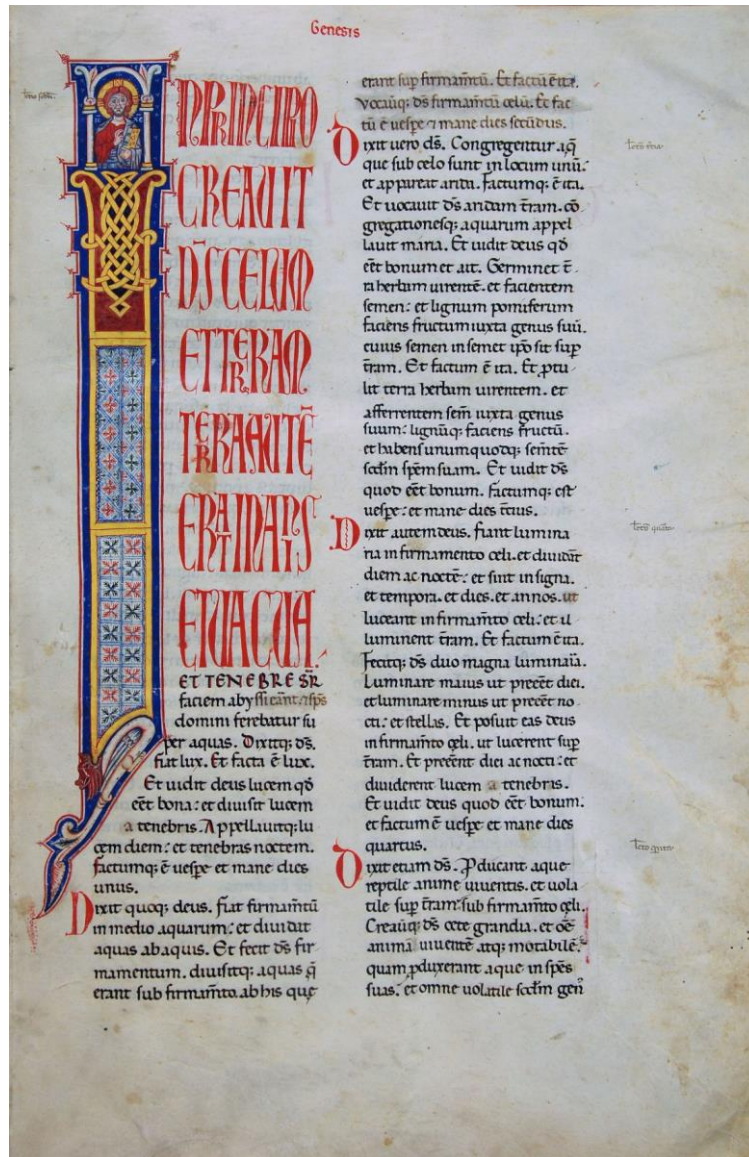 Genesis
IN PRINCIPIO
CREAVIT
DS̄ CELUM
ET TERRAM
TERRA AUTĒ
ERAT INANIS
ET VACUA
ET TENEBRE SR̄
faciem abyssi erant. &
domini ferebatur su
per aquas. Dixitq; ds̄.
fiat lux. Et facta ē lux.
Et uidit deus lucem qđ
eēt bona: et diuisit lucem
a tenebris. Appellauitq; lu
cem diem: et tenebras noctem.
factumq; ē uespe et mane dies
unus.
Dixit quoq; deus. fiat firmam̄tū
in medio aquarum: et diuidat
aquas ab aquis. Et fecit ds̄ fir
mamentum. diuisitq; aquas q̄
erant sub firmam̄to. ab his que
erant sup firmam̄tū. Et factū ē ita.
vocauq; ds̄ firmam̄tū celū. Et fac
tū ē uespe ⁊ mane dies secūdus.
Dixit uero ds̄. Congregentur aq̄
que sub celo sunt in locum unū:
et appareat arida. factumq; ē ita.
Et uocauit ds̄ aridam t̄ram. cō
gregationesq; aquarum appel
lauit maria. Et uidit deus qđ
eēt bonum et ait. Germinet t̄
ra herbam uirentē. et facientem
semen: et lignum pomiferum
faciens fructum iuxta genus suū.
cuius semen in semet ip̄o sit sup
t̄ram. Et factum ē ita. Et ꝓtu
lit terra herbam uirentem. et
afferentem sem̄ iuxta genus
suum: lignūq; faciens fructū.
et habens unumquodq; sem̄tē
scđm sp̄em suam. Et uidit ds̄
quod eēt bonum. factumq; est
uespe: et mane dies t̄cius.
Dixit autem deus. fiant lumina
ria in firmamento celi. et diuidāt
diem ac noctē: et sint in signa.
et tempora. et dies. et annos. ut
luceant in firmam̄to celi: et il
luminent t̄ram. Et factum ē ita.
Fecitq; ds̄ duo magna luminaria.
Luminare maius ut preeēt diei.
et luminare minus ut preeēt no
cti: et stellas. Et posuit eas deus
in firmam̄to celi. ut lucerent sup
t̄ram. Et preeēnt diei ac nocti: et
diuiderent lucem a tenebris.
Et uidit deus quod eēt bonum:
et factum ē uespe et mane dies
quartus.
Dixit etiam ds̄. Ꝓducant aque
reptile anime uiuentis. et uola
tile sup t̄ram: sub firmam̄to celi.
Creauq; ds̄ cete grandia. et oēm
animā uiuentē atq; motabilē.
quam ꝓduxerant aque in sp̄es
suas: et omne uolatile scđm gen̄